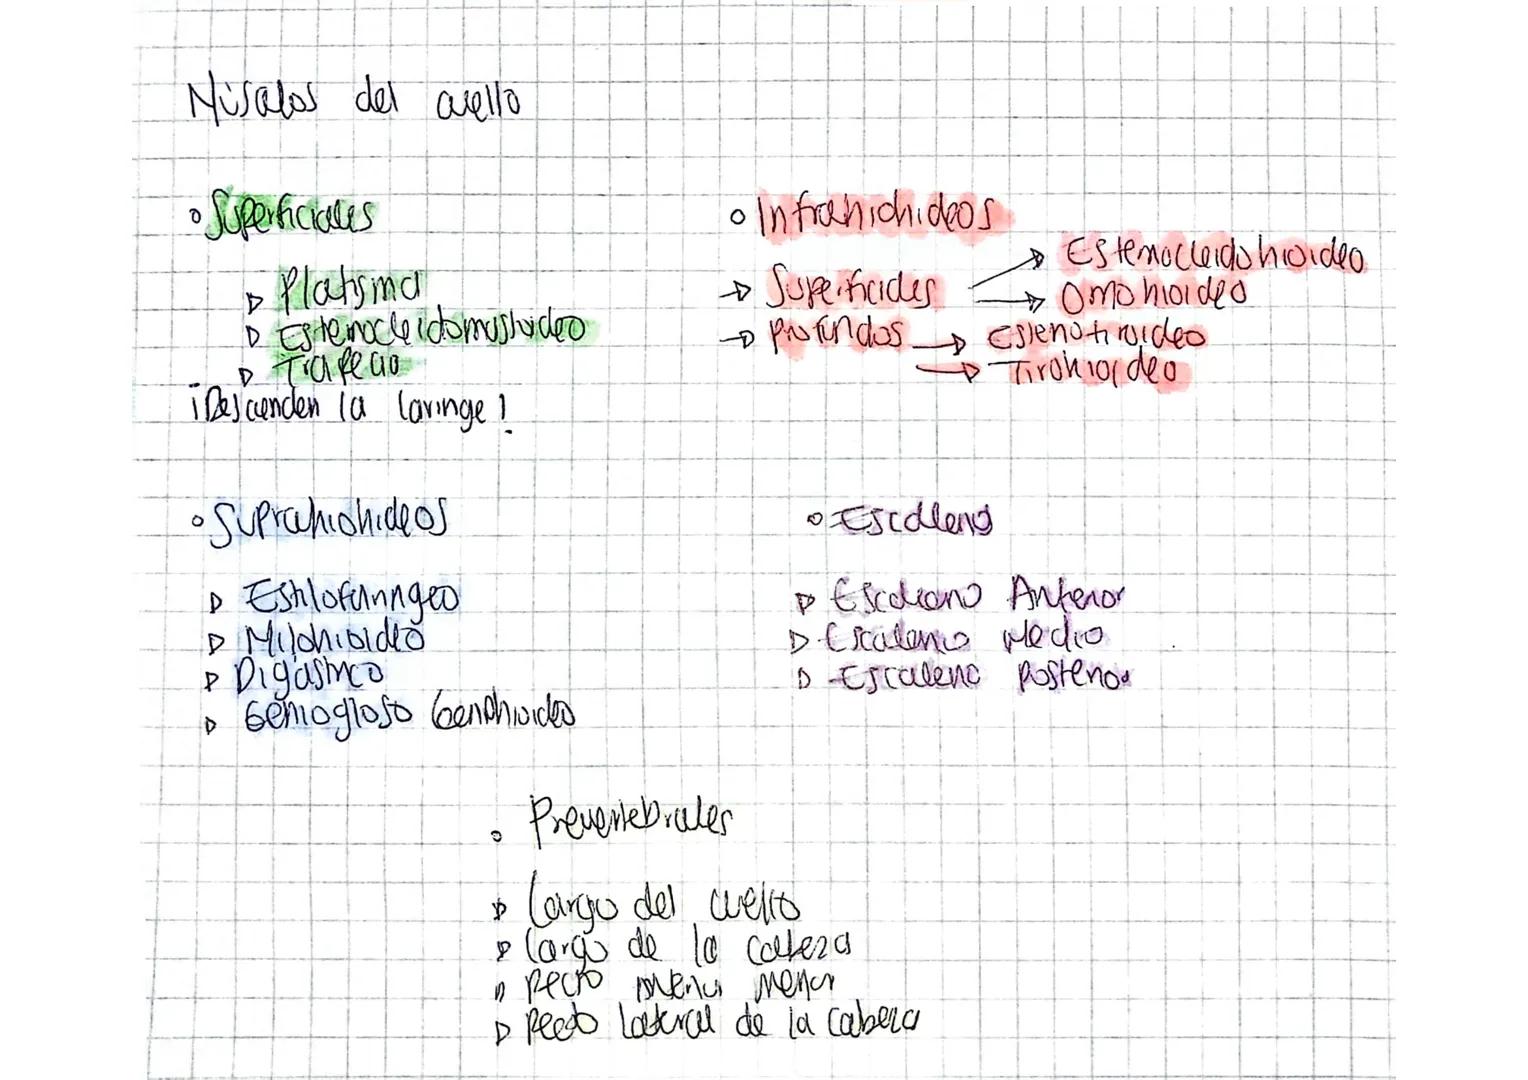 Músculos del cuello
◦ Superficiales
▷ Platisma
▷ Esternocleidomastoideo
▷ Trapecio
¡Descienden la laringe!
◦ Infrahiohideos
→ Superficiales → Esternocleidohioideo
→ Omohioideo
→ profundos → Esternotiroideo
→ Tirohioideo
◦ Suprahiohideos
▷ Estilofaringeo
▷ Milohioideo
▷ Digástrico
▷ Geniogloso Genihioideo
◦ Escaleno
▷ Escaleno Anterior
▷ Escaleno Medio
▷ Escaleno Posterior
◦ Prevertebrales
▷ Largo del cuello
▷ Largo de la cabeza
▷ Recto menor
▷ Recto lateral de la cabeza